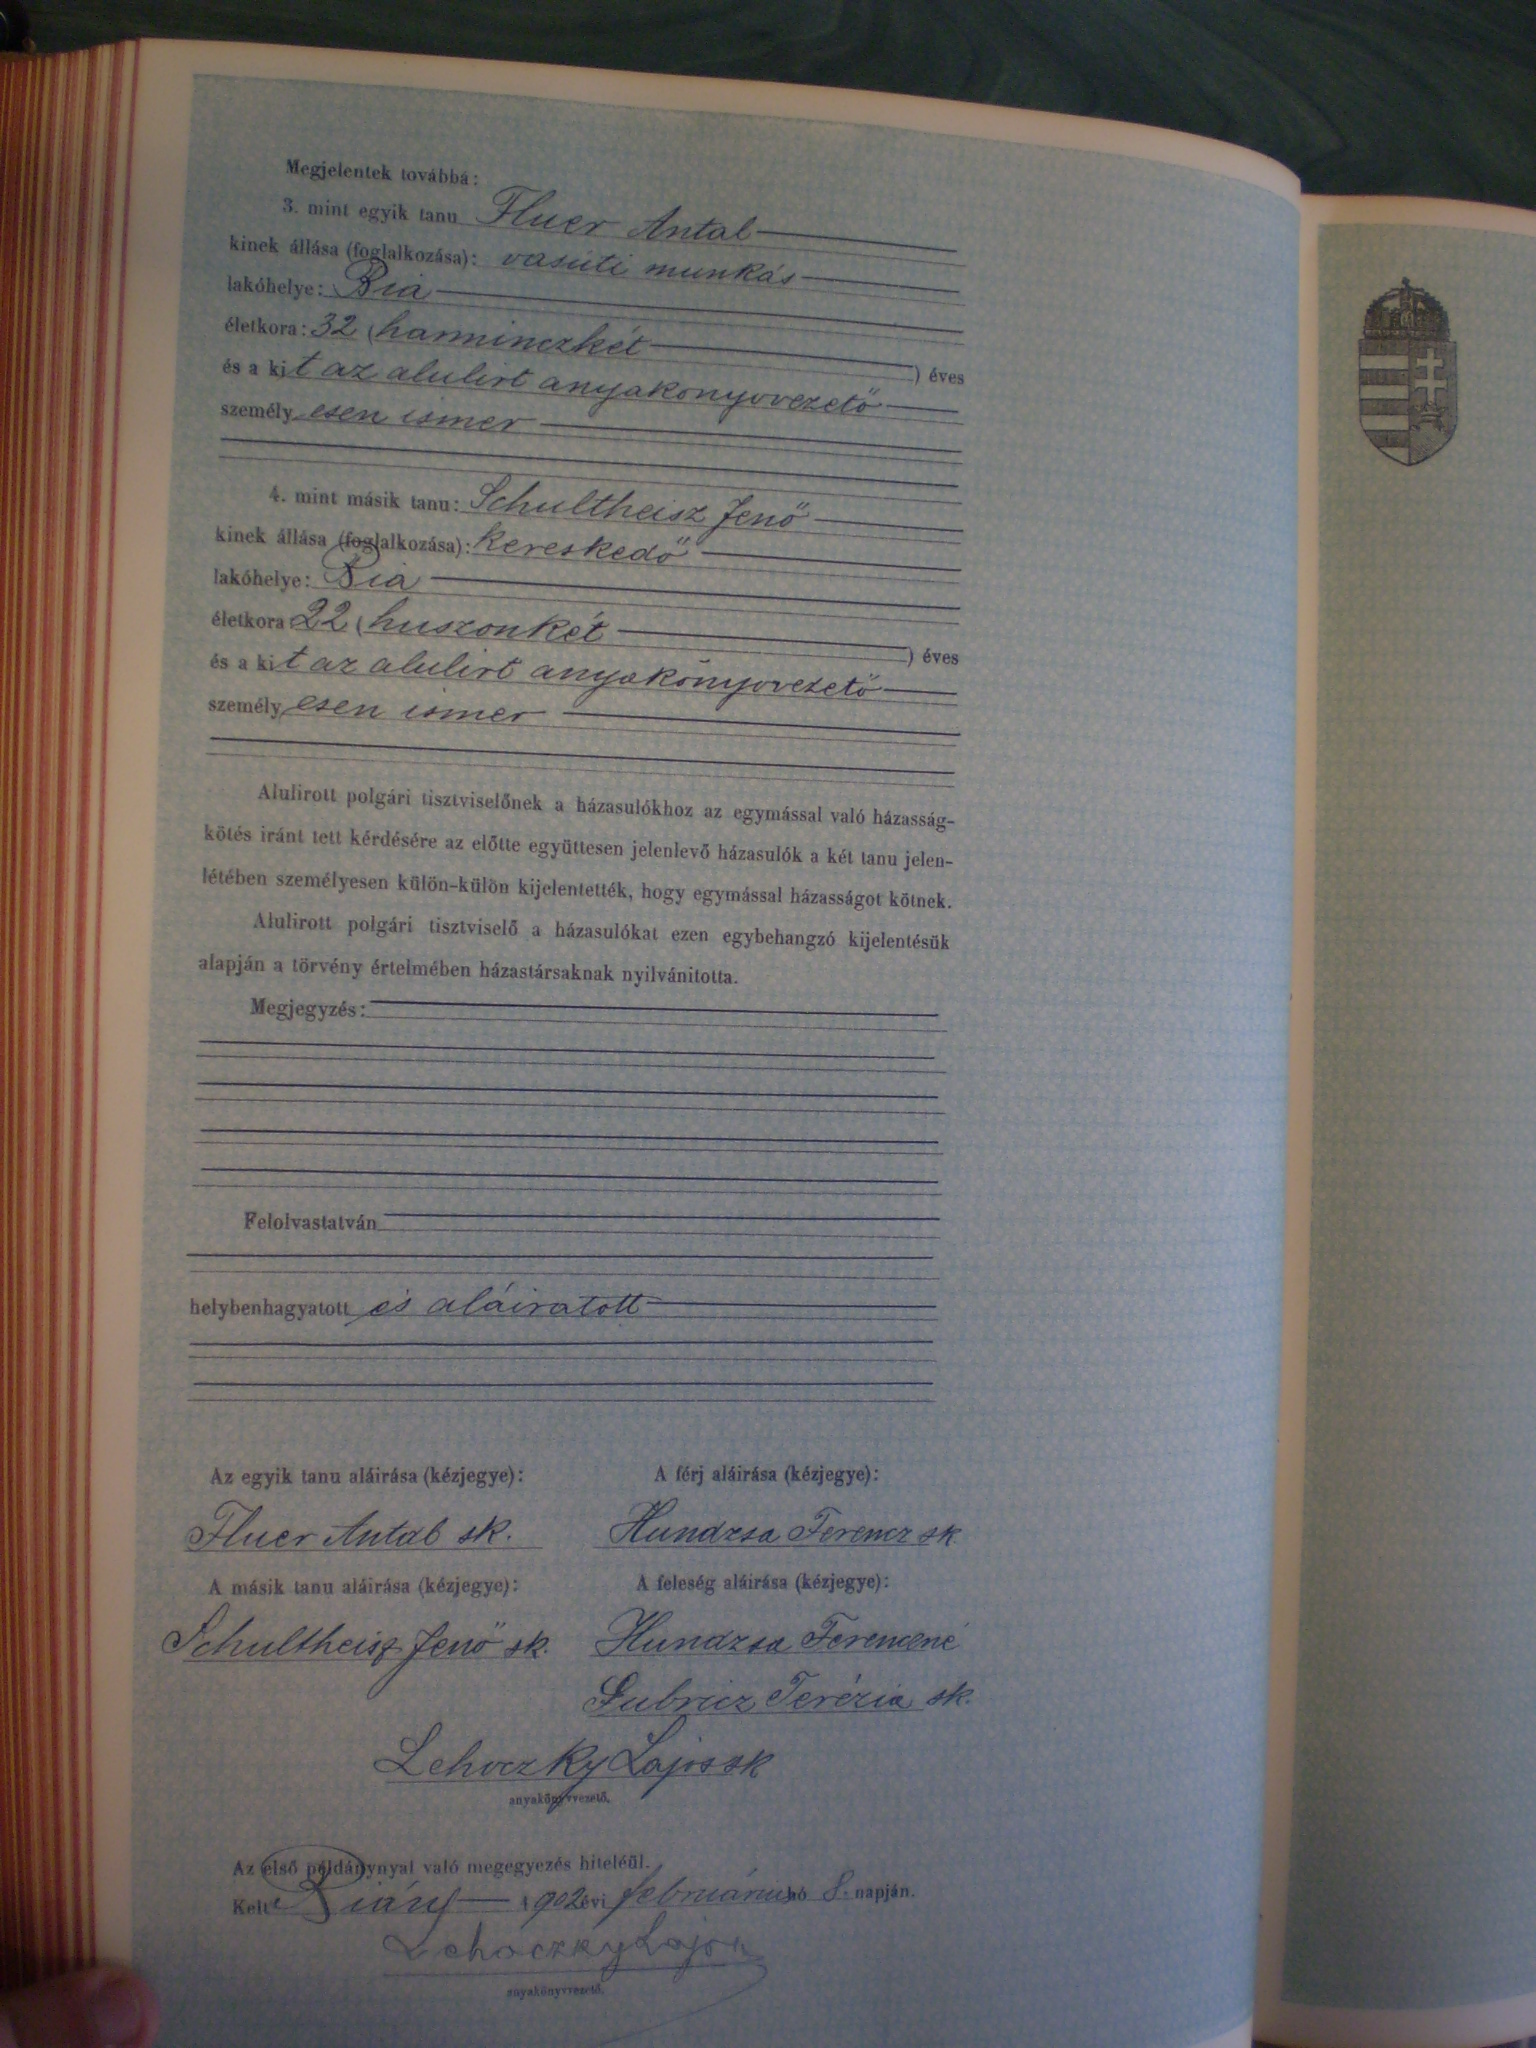 Megjelentek továbbá:
3. mint egyik tanu Fluer Antal
kinek állása (foglalkozása): vasúti munkás
lakóhelye: Bia
életkora: 32 (harminczkét ) éves
és a kit az alulirt anyakönyvvezető
személyesen ismer
4. mint másik tanu: Schultheisz Jenő
kinek állása (foglalkozása): kereskedő
lakóhelye: Bia
életkora 22 (huszonkét ) éves
és a kit az alulirt anyakönyvvezető
személyesen ismer
Alulirott polgári tisztviselőnek a házasulókhoz az egymással való házasság-
kötés iránt tett kérdésére az előtte együttesen jelenlevő házasulók a két tanu jelen-
létében személyesen külön-külön kijelentették, hogy egymással házasságot kötnek.
Alulirott polgári tisztviselő a házasulókat ezen egybehangzó kijelentésük
alapján a törvény értelmében házastársaknak nyilvánitotta.
Megjegyzés:
Felolvastatván
helybenhagyatott és aláiratott
Az egyik tanu aláirása (kézjegye): A férj aláirása (kézjegye):
Fluer Antal sk. Hundzsa Ferencz sk
A másik tanu aláirása (kézjegye): A feleség aláirása (kézjegye):
Schultheisz Jenő sk. Hundzsa Ferenczné
Gubricz Terézia sk.
Lehoczky Lajos sk
anyakönyvvezető.
Az első példánynyal való megegyezés hiteléül.
Kelt Bián, 1902 évi február hó 8. napján.
Lehoczky Lajos
anyakönyvvezető.